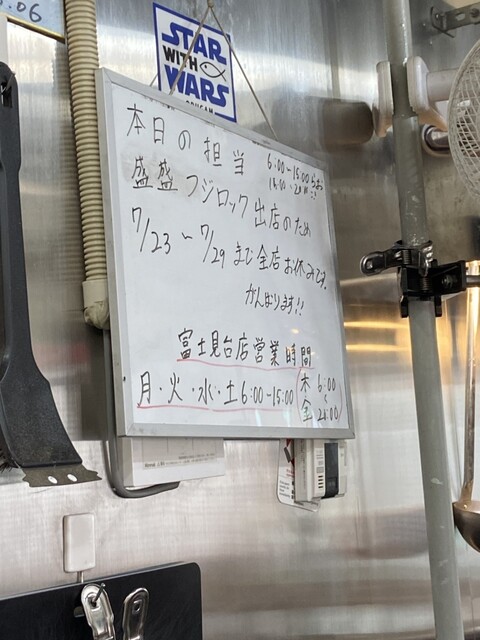 .06
STAR
WITH
WARS
本日の担当
6:00~15:00
盛盛 フジロック出店のため
7/23~7/29まで全店お休みです。
がんばります!!
富士見台店営業時間
月・火・水・土 6:00-15:00
木
金
6:00
~
21:00